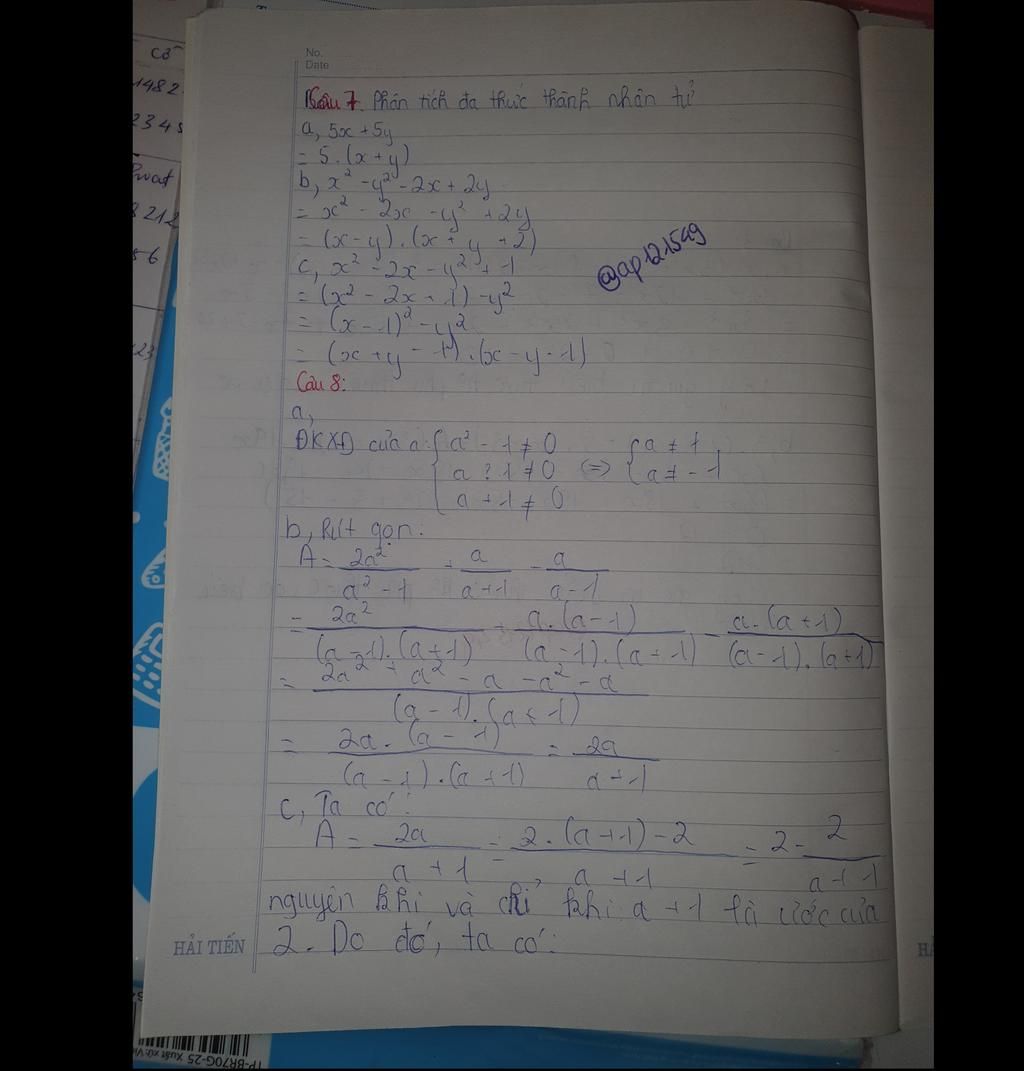 No.
Date
Câu 7. Phân tích đa thức thành nhân tử
a, 5x + 5y
= 5.(x + y)
b, x² - y² - 2x + 2y
= x² - 2x - y² + 2y
= (x - y).(x + y + 2)
c, x² - 2x - y² + 1
= (x² - 2x + 1) - y²
= (x - 1)² - y²
= (x + y - 1).(x - y - 1)
@ap121549
Câu 8:
a,
ĐKXĐ của a: { a² - 1 ≠ 0
a ? 1 ≠ 0 <=> { a ≠ 1
a + 1 ≠ 0 a ≠ -1
b, Rút gọn:
A = 2a² / a² - 1 + a / a + 1 - a / a - 1
= 2a² / (a - 1).(a + 1) + a.(a - 1) / (a - 1).(a + 1) - a.(a + 1) / (a - 1).(a + 1)
= 2a² + a² - a - a² - a / (a - 1).(a + 1)
= 2a.(a - 1) / (a - 1).(a + 1) = 2a / a + 1
c, Ta có:
A = 2a / a + 1 = 2.(a + 1) - 2 / a + 1 = 2 - 2 / a + 1
nguyên khi và chỉ khi a + 1 là ước của
2. Do đó, ta có:
HẢI TIẾN
cố
1482
2345
8212
56
23
TP-BR70G-25